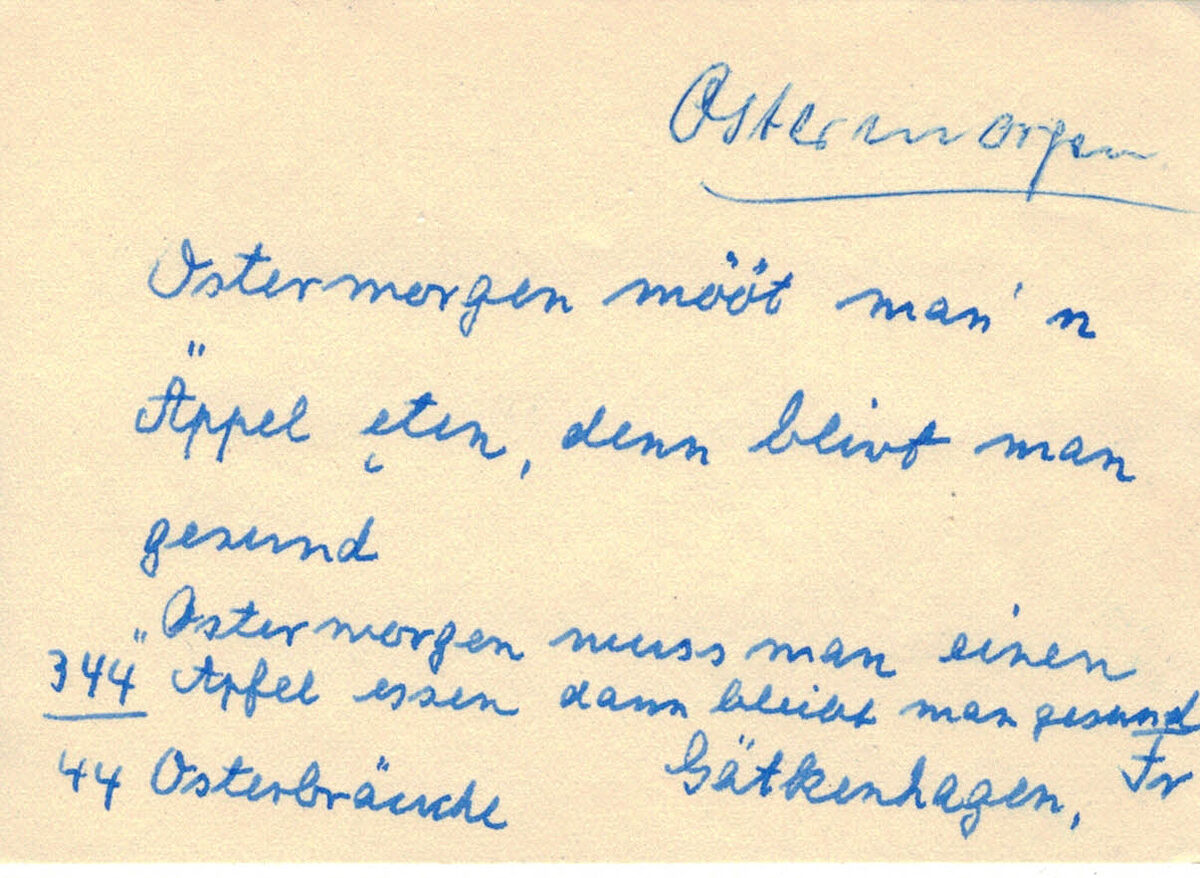 Ostermorgen
Ostermorgen mööt man'n
Äppel ęten, denn blivt man
gesund
"Ostermorgen muss man einen
344 Apfel essen dann bleibt man gesund
44 Osterbräuche Gätkenhagen, Fr